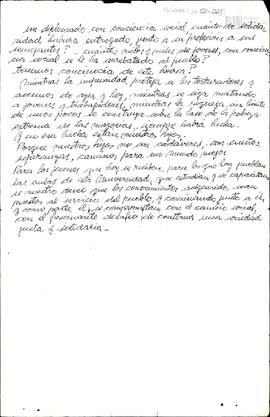 un diplomado con conciencia social, cuánto de solida
ridad hubiera entregado junto a su profesión a sus
semejantes? cuántos miles y miles de jóvenes, con concien
cia social se le ha arrebatado al pueblo?
Tenemos conciencia de este horror?
Mientras la impunidad proteja a los torturadores y
asesinos de ayer y hoy, mientras se siga matando
a jóvenes y trabajadores, mientras la riqueza sin límite
de unos pocos se construya sobre la base de la pobreza
extrema de las mayorías, siempre habrá lucha.
Y en esa lucha estarán nuestros hijos.
Porque nuestros hijos no son cadáveres, son sueños,
esperanzas, caminos para un mundo mejor.
Para los jóvenes que hoy se reciben, para los que hoy pueblan
las aulas de esta Universidad, que estudian y se capacitan
es nuestro deseo que los conocimientos adquiridos, sean
puestos al servicio del pueblo, y caminando junto a él,
y como parte de él, se comprometan con el cambio social,
con el fascinante desafío de construir una sociedad
justa y solidaria.